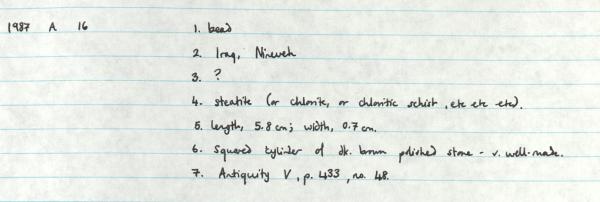 1987 A 16 1. bead
2. Iraq, Nineveh
3. ?
4. steatite (or chlorite, or chloritic schist, etc etc etc).
5. length, 5.8 cm; width, 0.7 cm.
6. Squared cylinder of dk. brown polished stone - v. well-made.
7. Antiquity V, p. 433, no. 48.